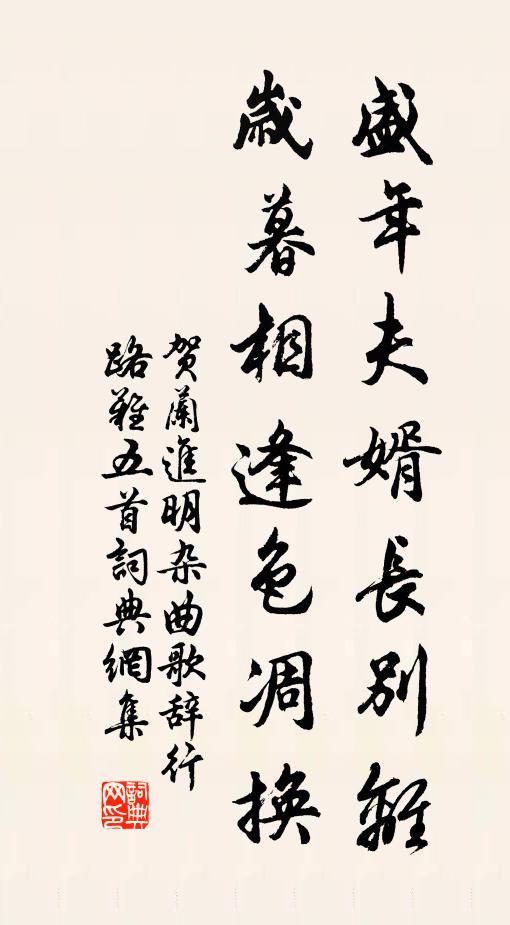 盛年夫婿長別離
歲暮相逢色凋換
贺蘭進明杂曲歌辞行
路難五首詞典網集
詞典网印